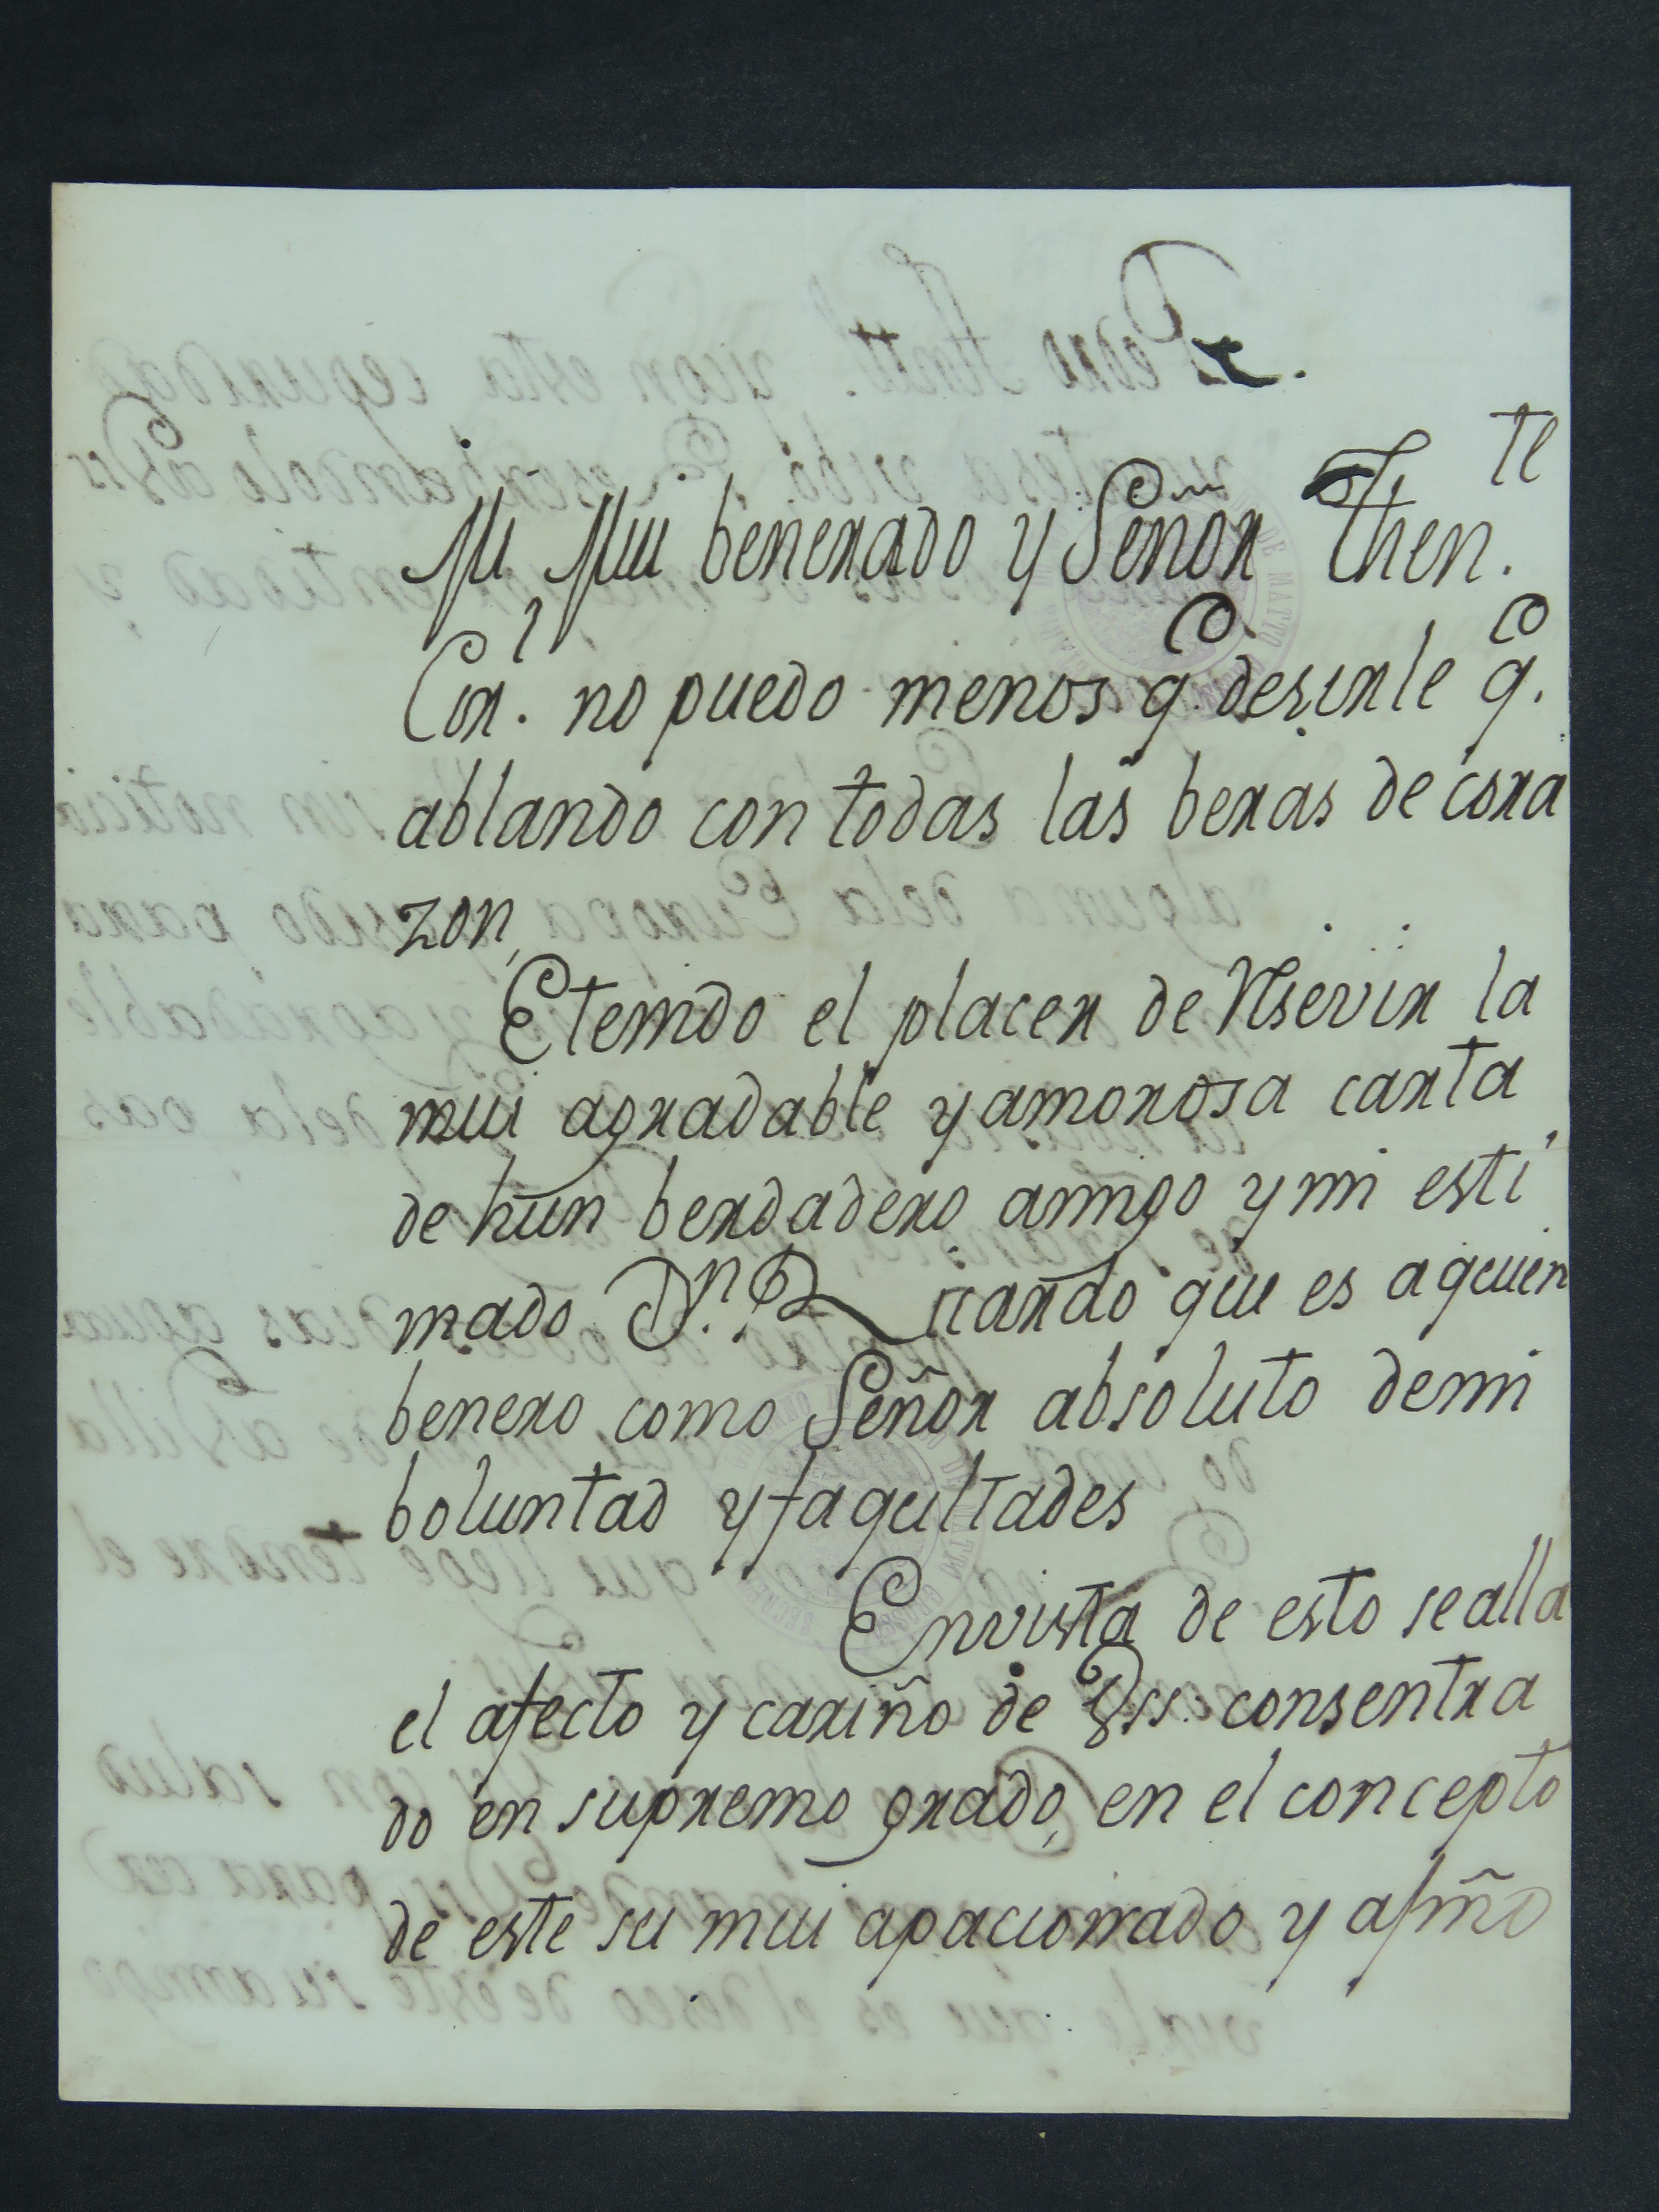 Mui Mui benerado y Señor Then.te
Cor.l no puedo menos q.e desirle q.e
ablando con todas las beras de cora
zon,
Etenido el placer de Rsevir la
mui agradable y amorosa carta
de hun berdadero amigo y mi esti
mado D.n Ricardo que es aquien
benero como Señor absoluto demi
boluntad y faqultades
Envista de esto sealla
el afecto y cariño de Vss. consentra
do en supremo grado, en el concepto
de este su mui apacionado y afmõ